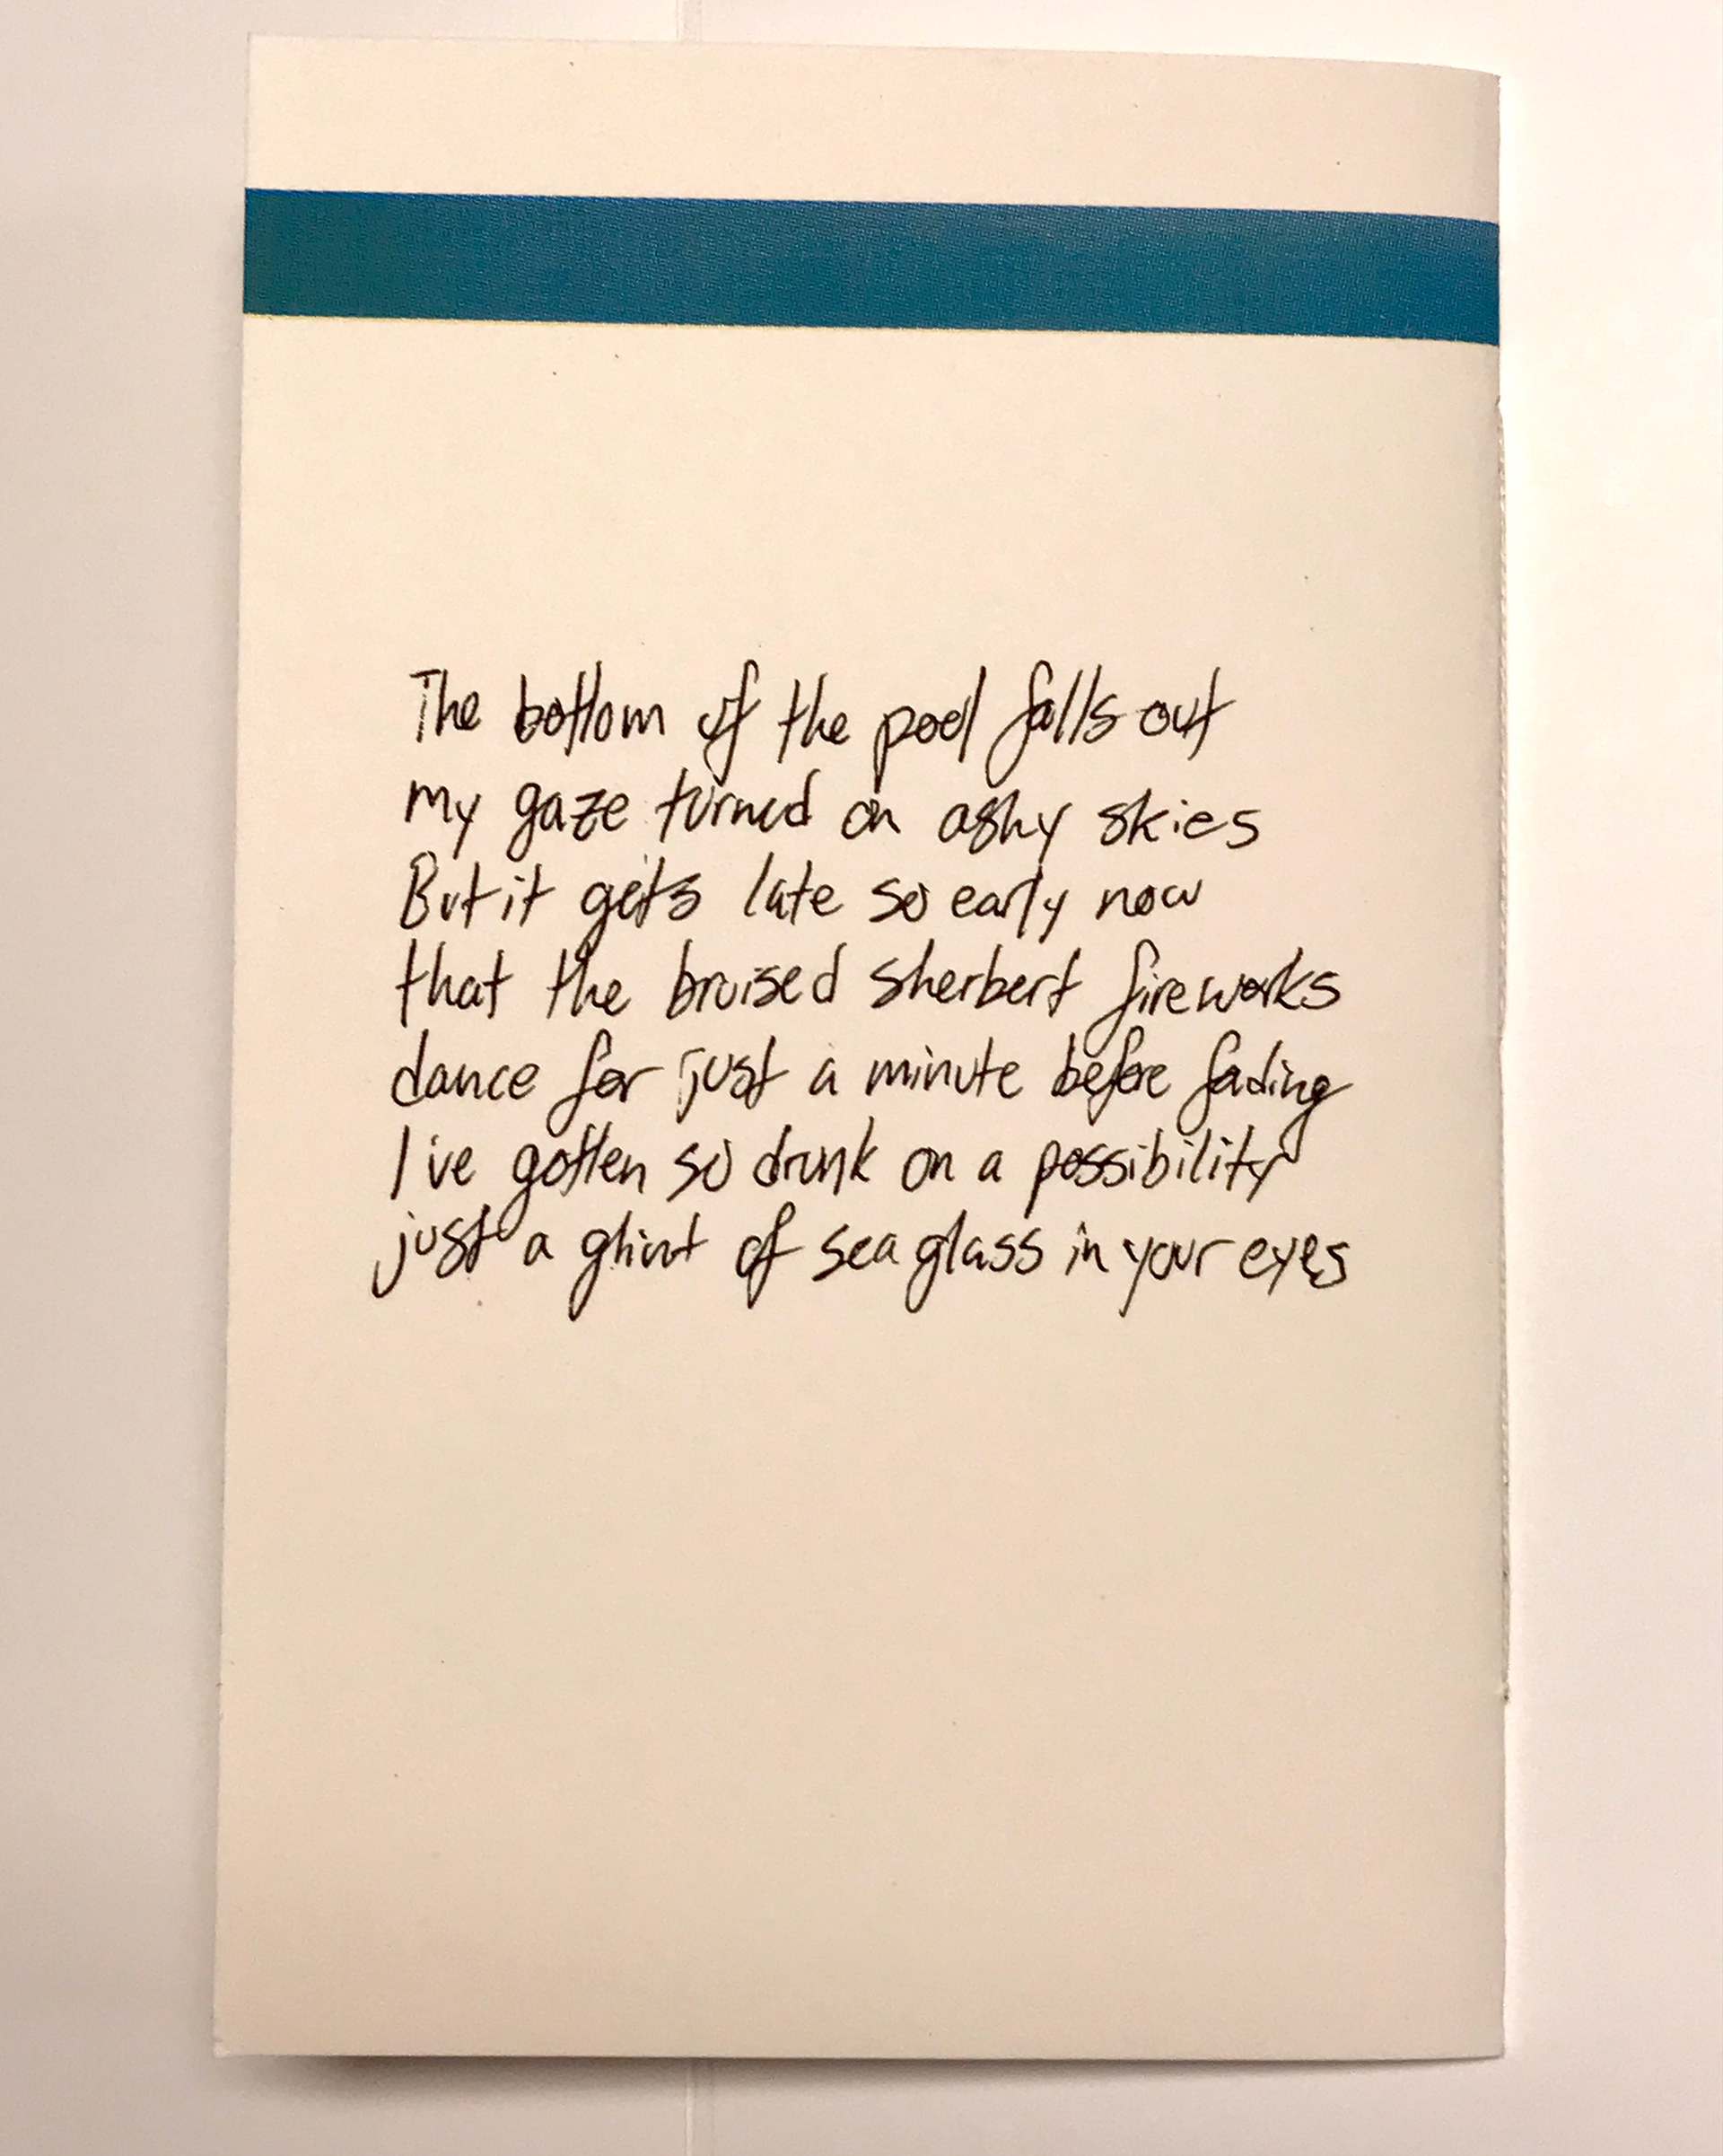 The bottom of the pool falls out
my gaze turned on ashy skies
But it gets late so early now
that the bruised sherbert fireworks
dance for just a minute before fading
I've gotten so drunk on a possibility
just a glint of sea glass in your eyes